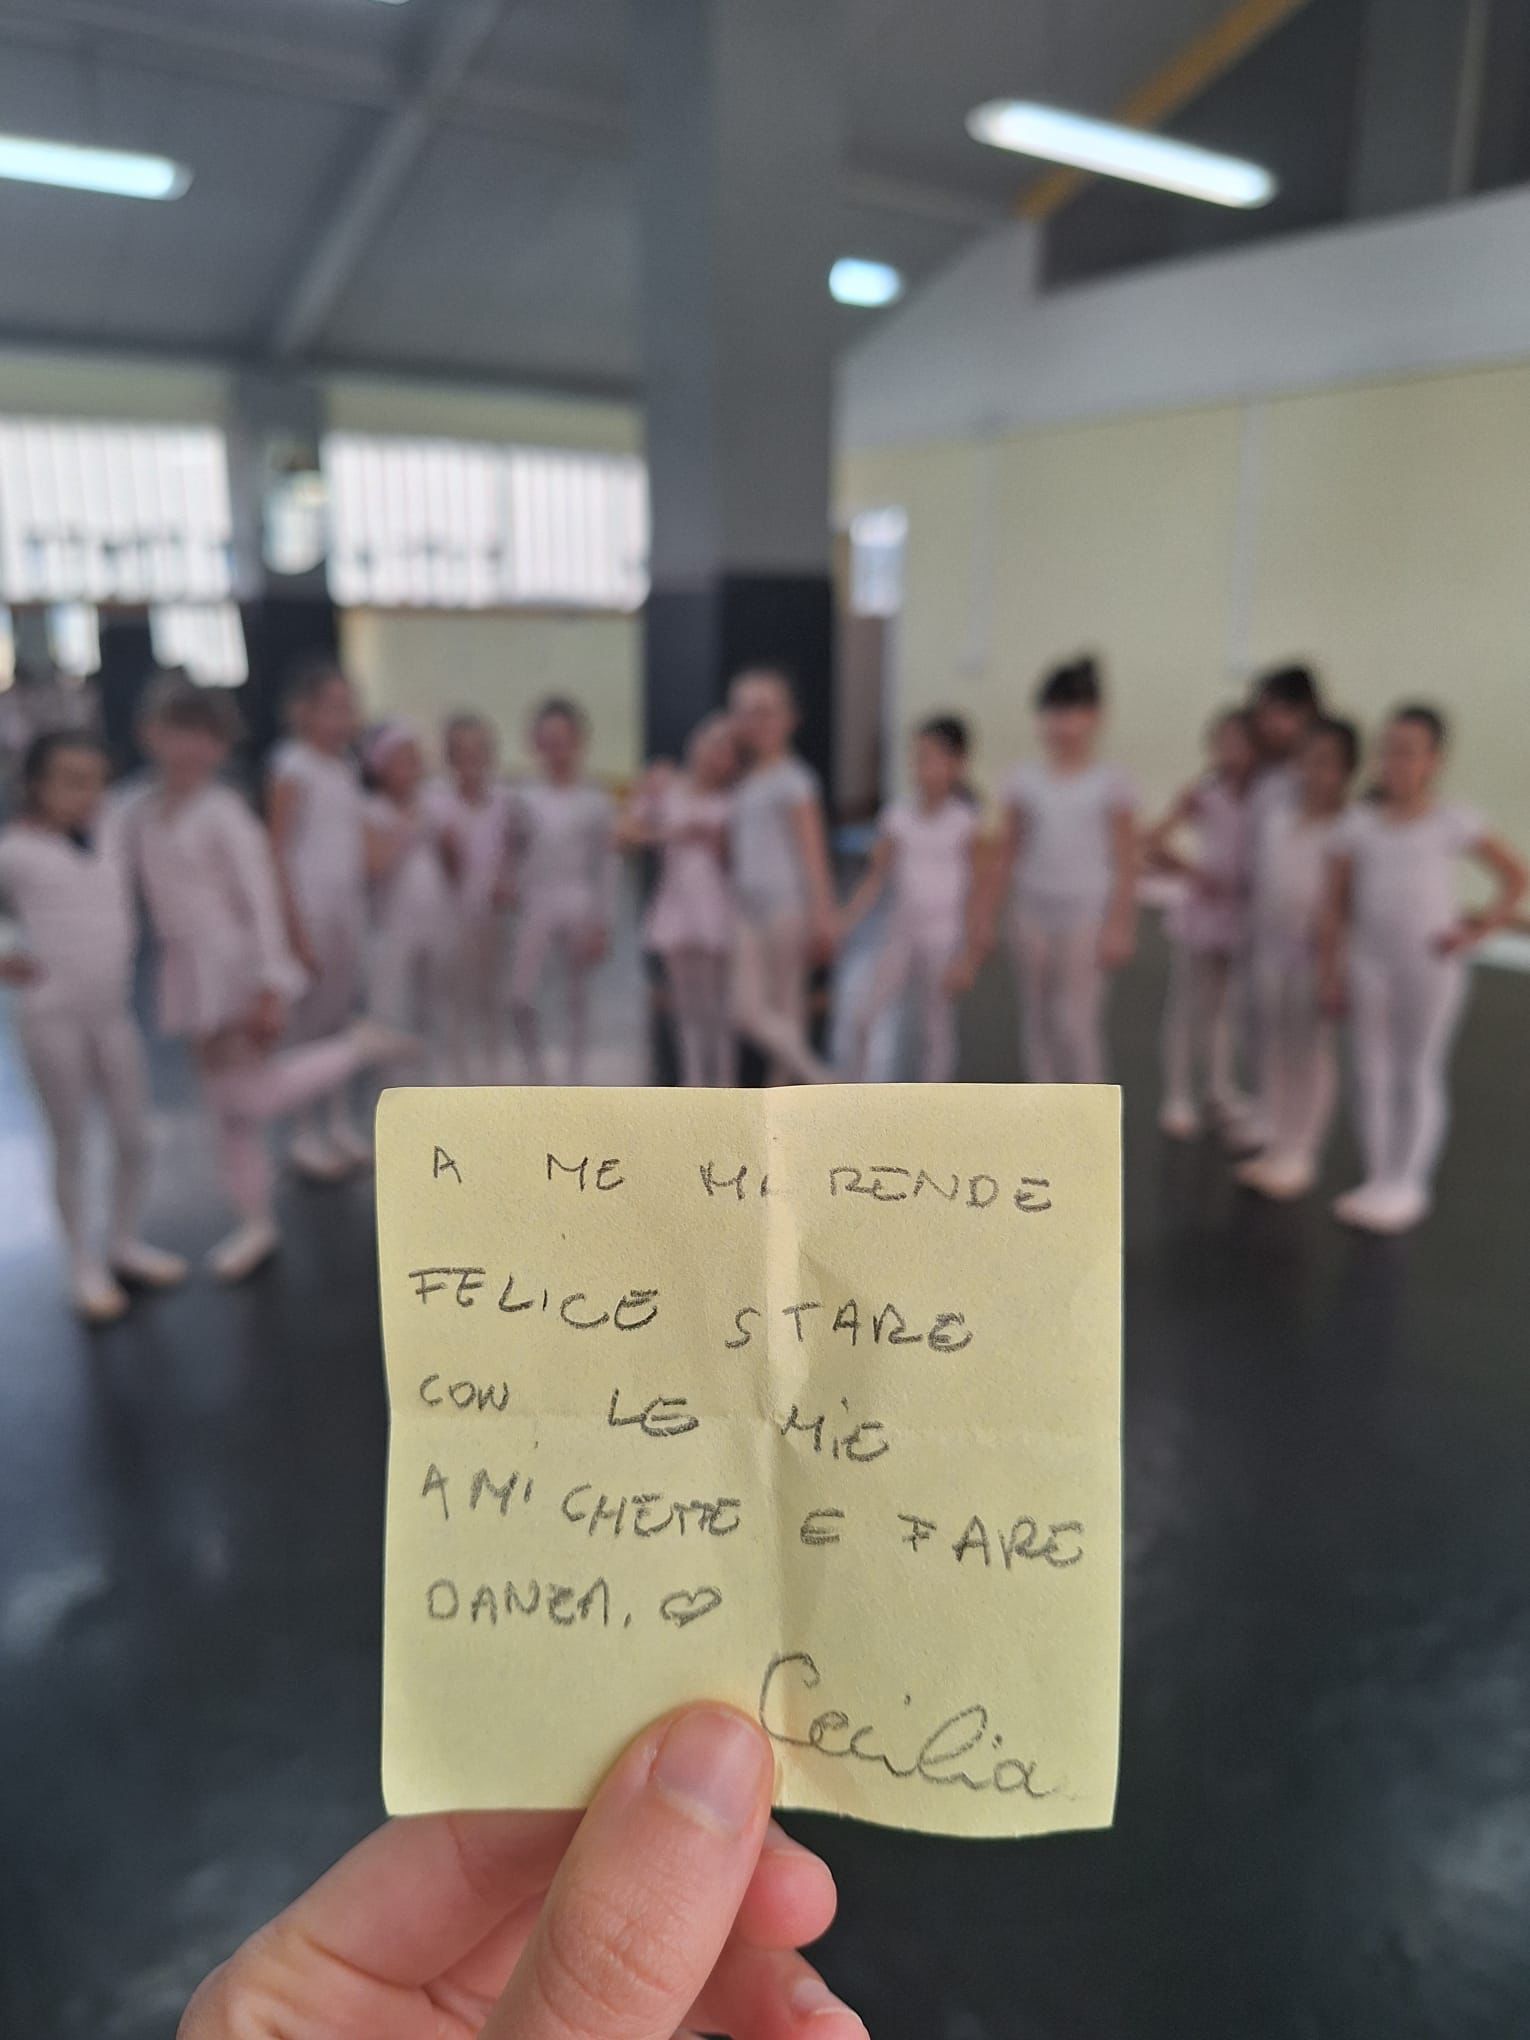 A ME MI RENDE
FELICE STARE
CON LE MIE
AMICHETTE E FARE
DANZA. ♡
Cecilia